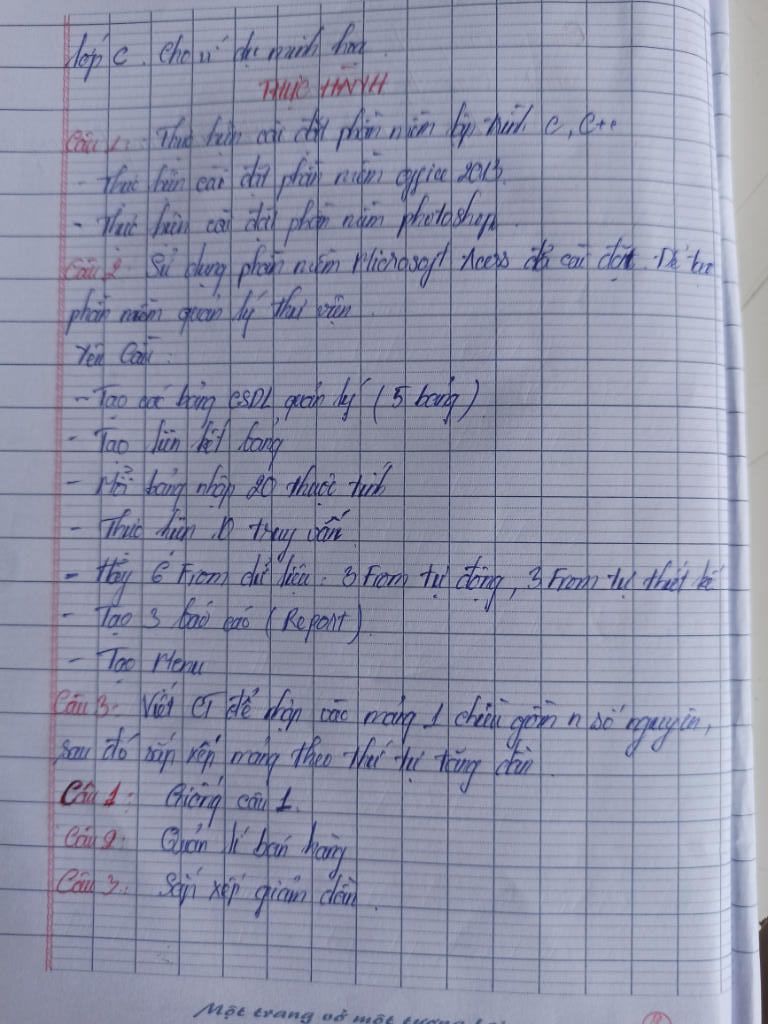 lớp C. Cho ví dụ minh họa
THỰC HÀNH
Câu 1: Thực hiện cài đặt phần mềm lập trình C, C++
- Thực hiện cài đặt phần mềm office 2013.
- Thực hiện cài đặt phần mềm photoshop
Câu 2: Sử dụng phần mềm Microsoft Acers đã cài đặt. Để tạo
phần mềm quản lý thư viện.
Yêu Cầu:
- Tạo các bảng CSDL quản lý (5 bảng)
- Tạo liên kết bảng
- Mỗi bảng nhập 20 thuộc tính
- Thực hiện 10 truy vấn
- Hãy 6 From dữ liệu. 3 From tự động, 3 From tự thiết kế
- Tạo 3 báo cáo (Report)
- Tạo Menu
Câu 3: Viết CT để nhập vào mảng 1 chiều gồm n số nguyên,
sau đó sắp xếp mảng theo thứ tự tăng dần.
Câu 1: Giống câu 1.
Câu 2: Quản lí bán hàng
Câu 3: Sắp xếp giảm dần.
Một trang vở một tương